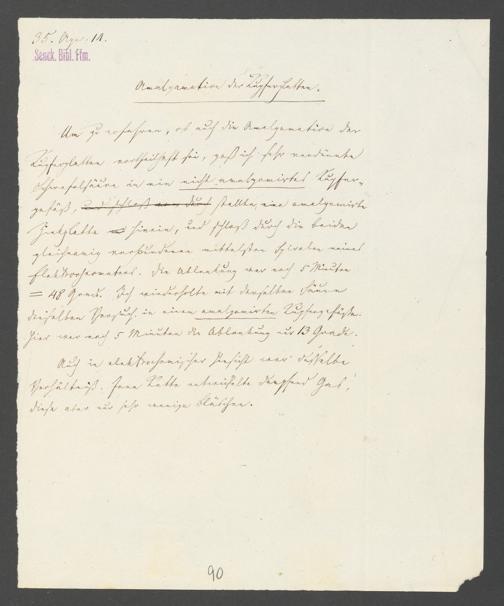 35. Apr. 14.
Senck. Bibl. Ffm.
Amalgamation der Kupferplatten.
Um zu erfahren, ob auch die Amalgamation der
Kupferplatten vortheilhaft sei, goß ich sehr verdünnte
Schwefelsäure in ein nicht amalgamirtes Kupfer-
gefäß, und schloß durch stellte eine amalgamirte
Zinkplatte hinein, und schloß durch die beiden
gleichnamig verbundenen mittelsten Spiralen eines
Elektrogeometers. Die Ablenkung war nach 5 Minuten
= 48 Grad. Ich wiederholte mit derselben Säure
denselben Versuch in einem amalgamirten Kupfergefäße.
Hier war nach 5 Minuten die Ablenkung nur 13 Grade.
Auch in elektrochemischer Hinsicht war dasselbe
Verhältniß. Jene Kette entwickelte dampfend Gas,
diese aber nur sehr wenige Bläschen.
90